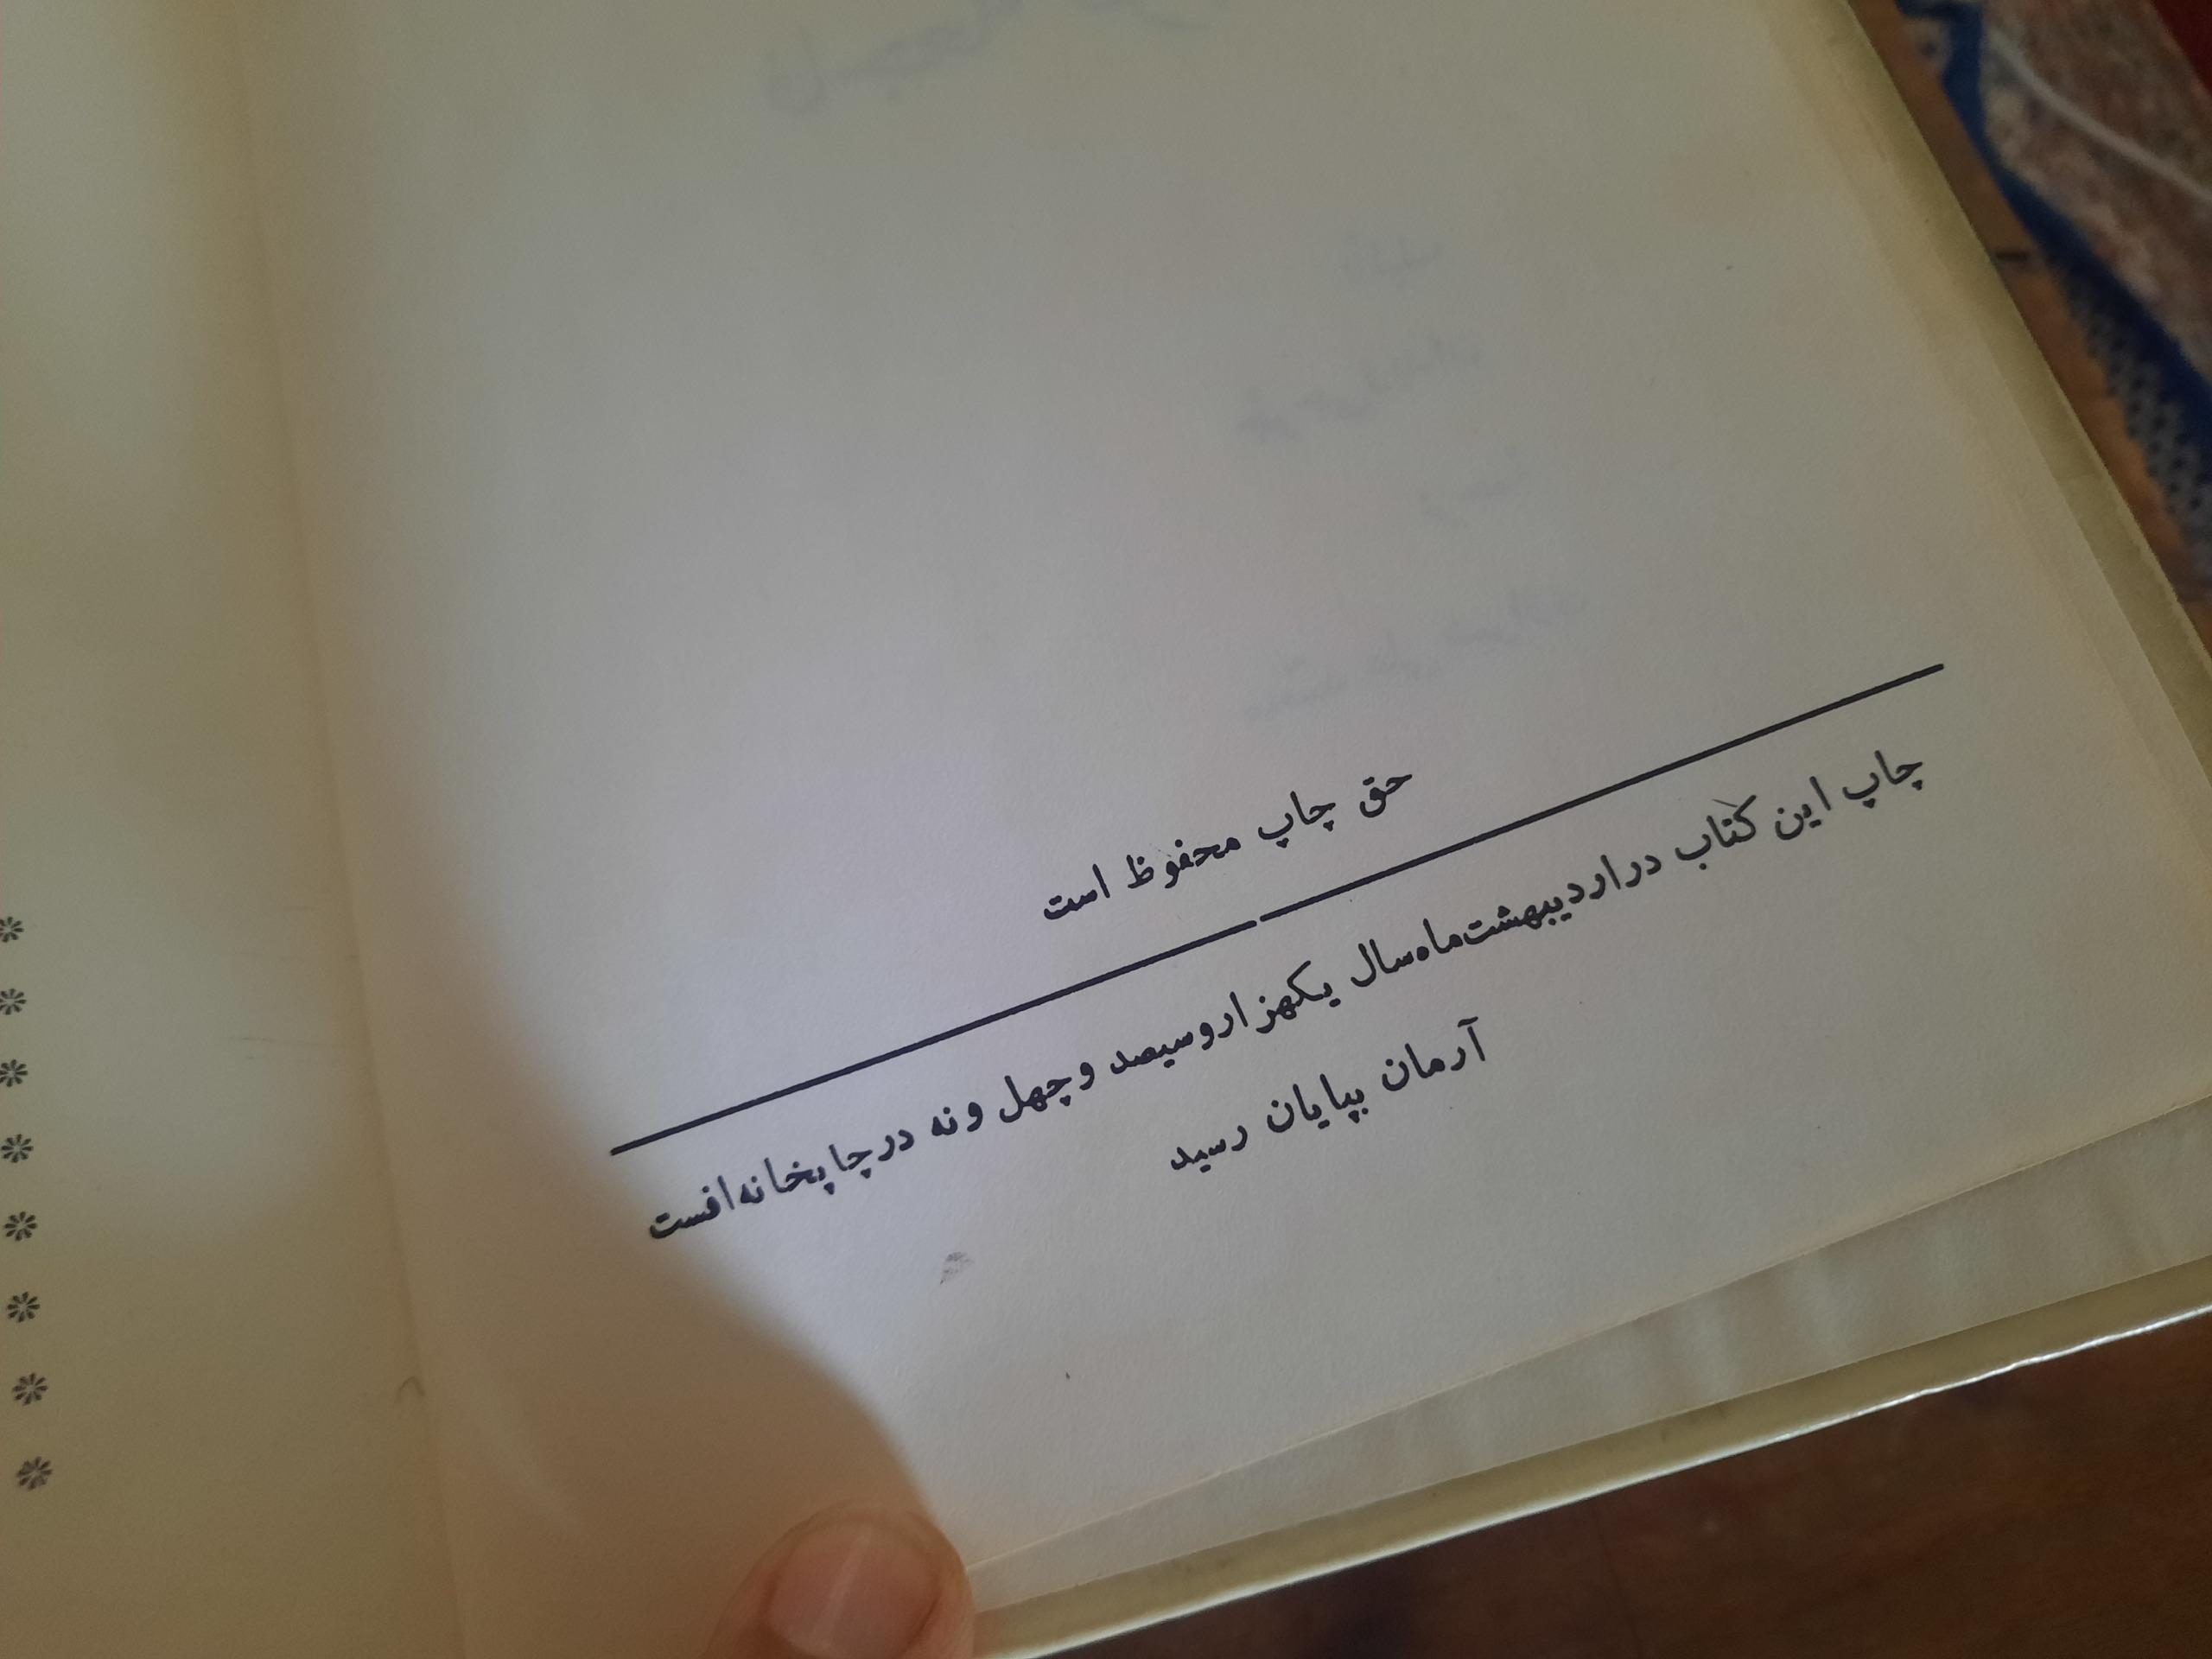 حق چاپ محفوظ است
چاپ این کتاب در اردیبهشت‌ماه سال یکهزار و سیصد و چهل و نه در چاپخانه افست
آرمان بپایان رسید